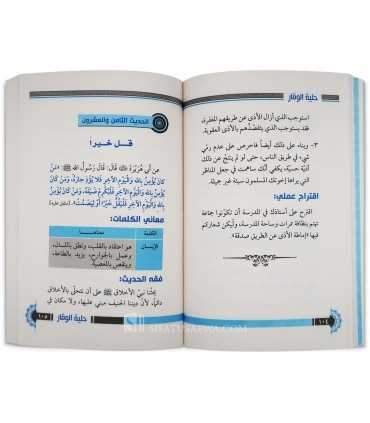 حلية الوقار
استوجب الأذى من أزال الأذى عن طريقهم المغفرة،
فقد يستوجب الذي يتقصّدهم بالأذى العقوبة.
٣- وبناء على ذلك أيضاً فاحرص على عدم رمي
شيء في طريق الناس، حتى لو لم ينتج عن ذلك
أذية حسيّة، يكفي أنك أسهمت في جعل المناظر
التي يراها إخوتك المسلمون سيئة غير جميلة.
اقتراح عملي:
اقترح على أستاذك في المدرسة أن تكونوا جماعة
تهتم بنظافة ممرات وساحة المدرسة، وليكن شعاركم
فيها «إماطة الأذى عن الطريق صدقة»
١٠٤
الحديث الثامن والعشرون
قل خيراً!
عن أبي هريرة قال: قال رسول الله ﷺ: «من
كان يؤمن بالله واليوم الآخر فلا يؤذ جاره، ومن كان
يؤمن بالله واليوم الآخر فليكرم ضيفه، ومن كان
يؤمن بالله واليوم الآخر فليقل خيراً أو ليصمت».
معاني الكلمات:
الكلمة معناهـا
الإيمان هو اعتقاد بالقلب، ونطق باللسان،
وعمل بالجوارح، يزيد بالطاعة،
وينقص بالمعصية.
فقه الحديث:
يحثنا نبي الأخلاق ﷺ على أن نتحلّى بالأخلاق
دائماً، لأن ديننا الحنيف مبني عليها، ولا مكان في
حلية الوقار
١٠٥